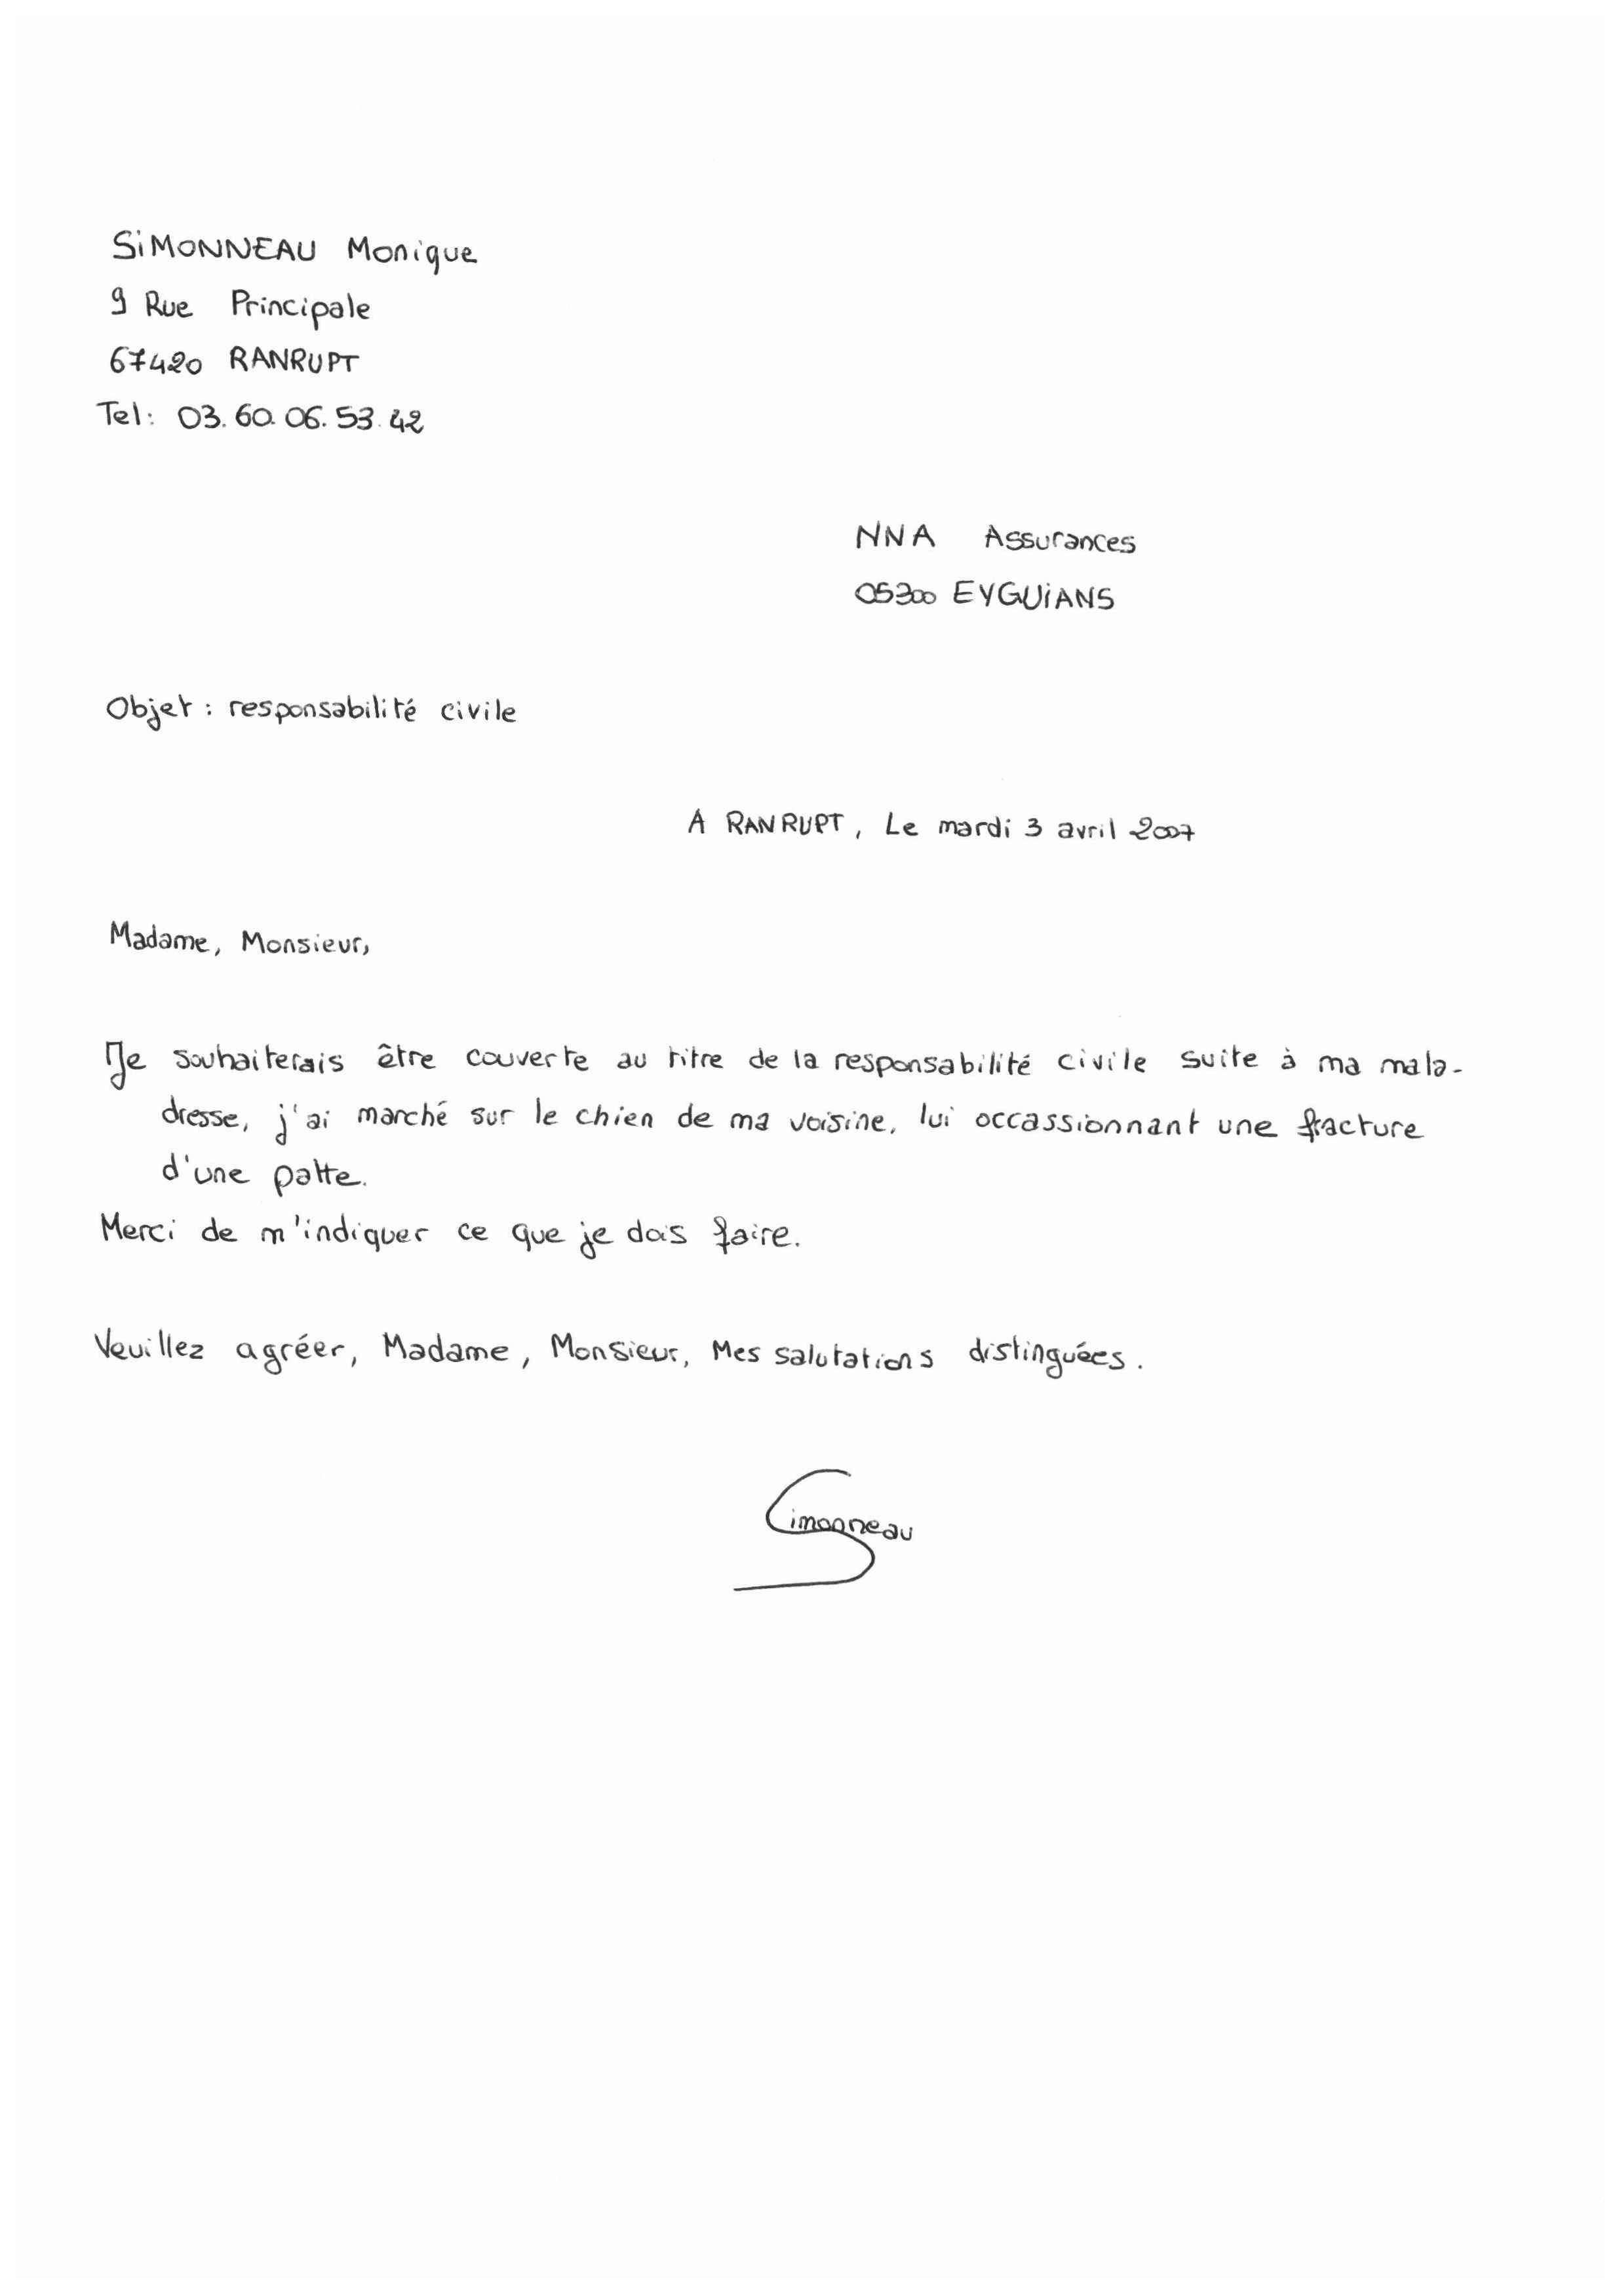 SiMONNEAU Monique
9 Rue Principale
67420 RANRUPT
Tel: 03.60.06.53.42
NNA Assurances
05300 EYGUiANS
Objet : responsabilité civile
A RANRUPT, Le mardi 3 avril 2007
Madame, Monsieur,
Je souhaiterais être couverte au titre de la responsabilité civile suite à ma mala-
dresse, j'ai marché sur le chien de ma voisine, lui occassionnant une fracture
d'une patte.
Merci de m'indiquer ce que je dois faire.
Veuillez agréer, Madame, Monsieur, Mes salutations distinguées.
Simonneau